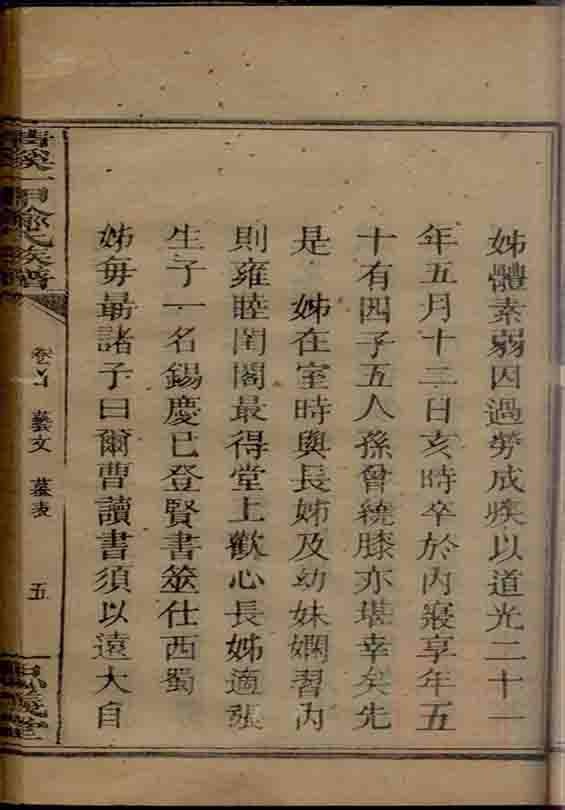 姊體素弱因過勞成疾以道光二十一
年五月十三日亥時卒於內寢享年五
十有四子五人孫曾繞膝亦堪幸矣先
是 姊在室時與長姊及幼妹嫻習內
則雍睦閨閣最得堂上歡心長姊適張
生子一名錫慶已登賢書筮仕西蜀
姊每勗諸子曰爾曹讀書須以遠大自
氏族譜
卷 藝文 墓表
五
堂